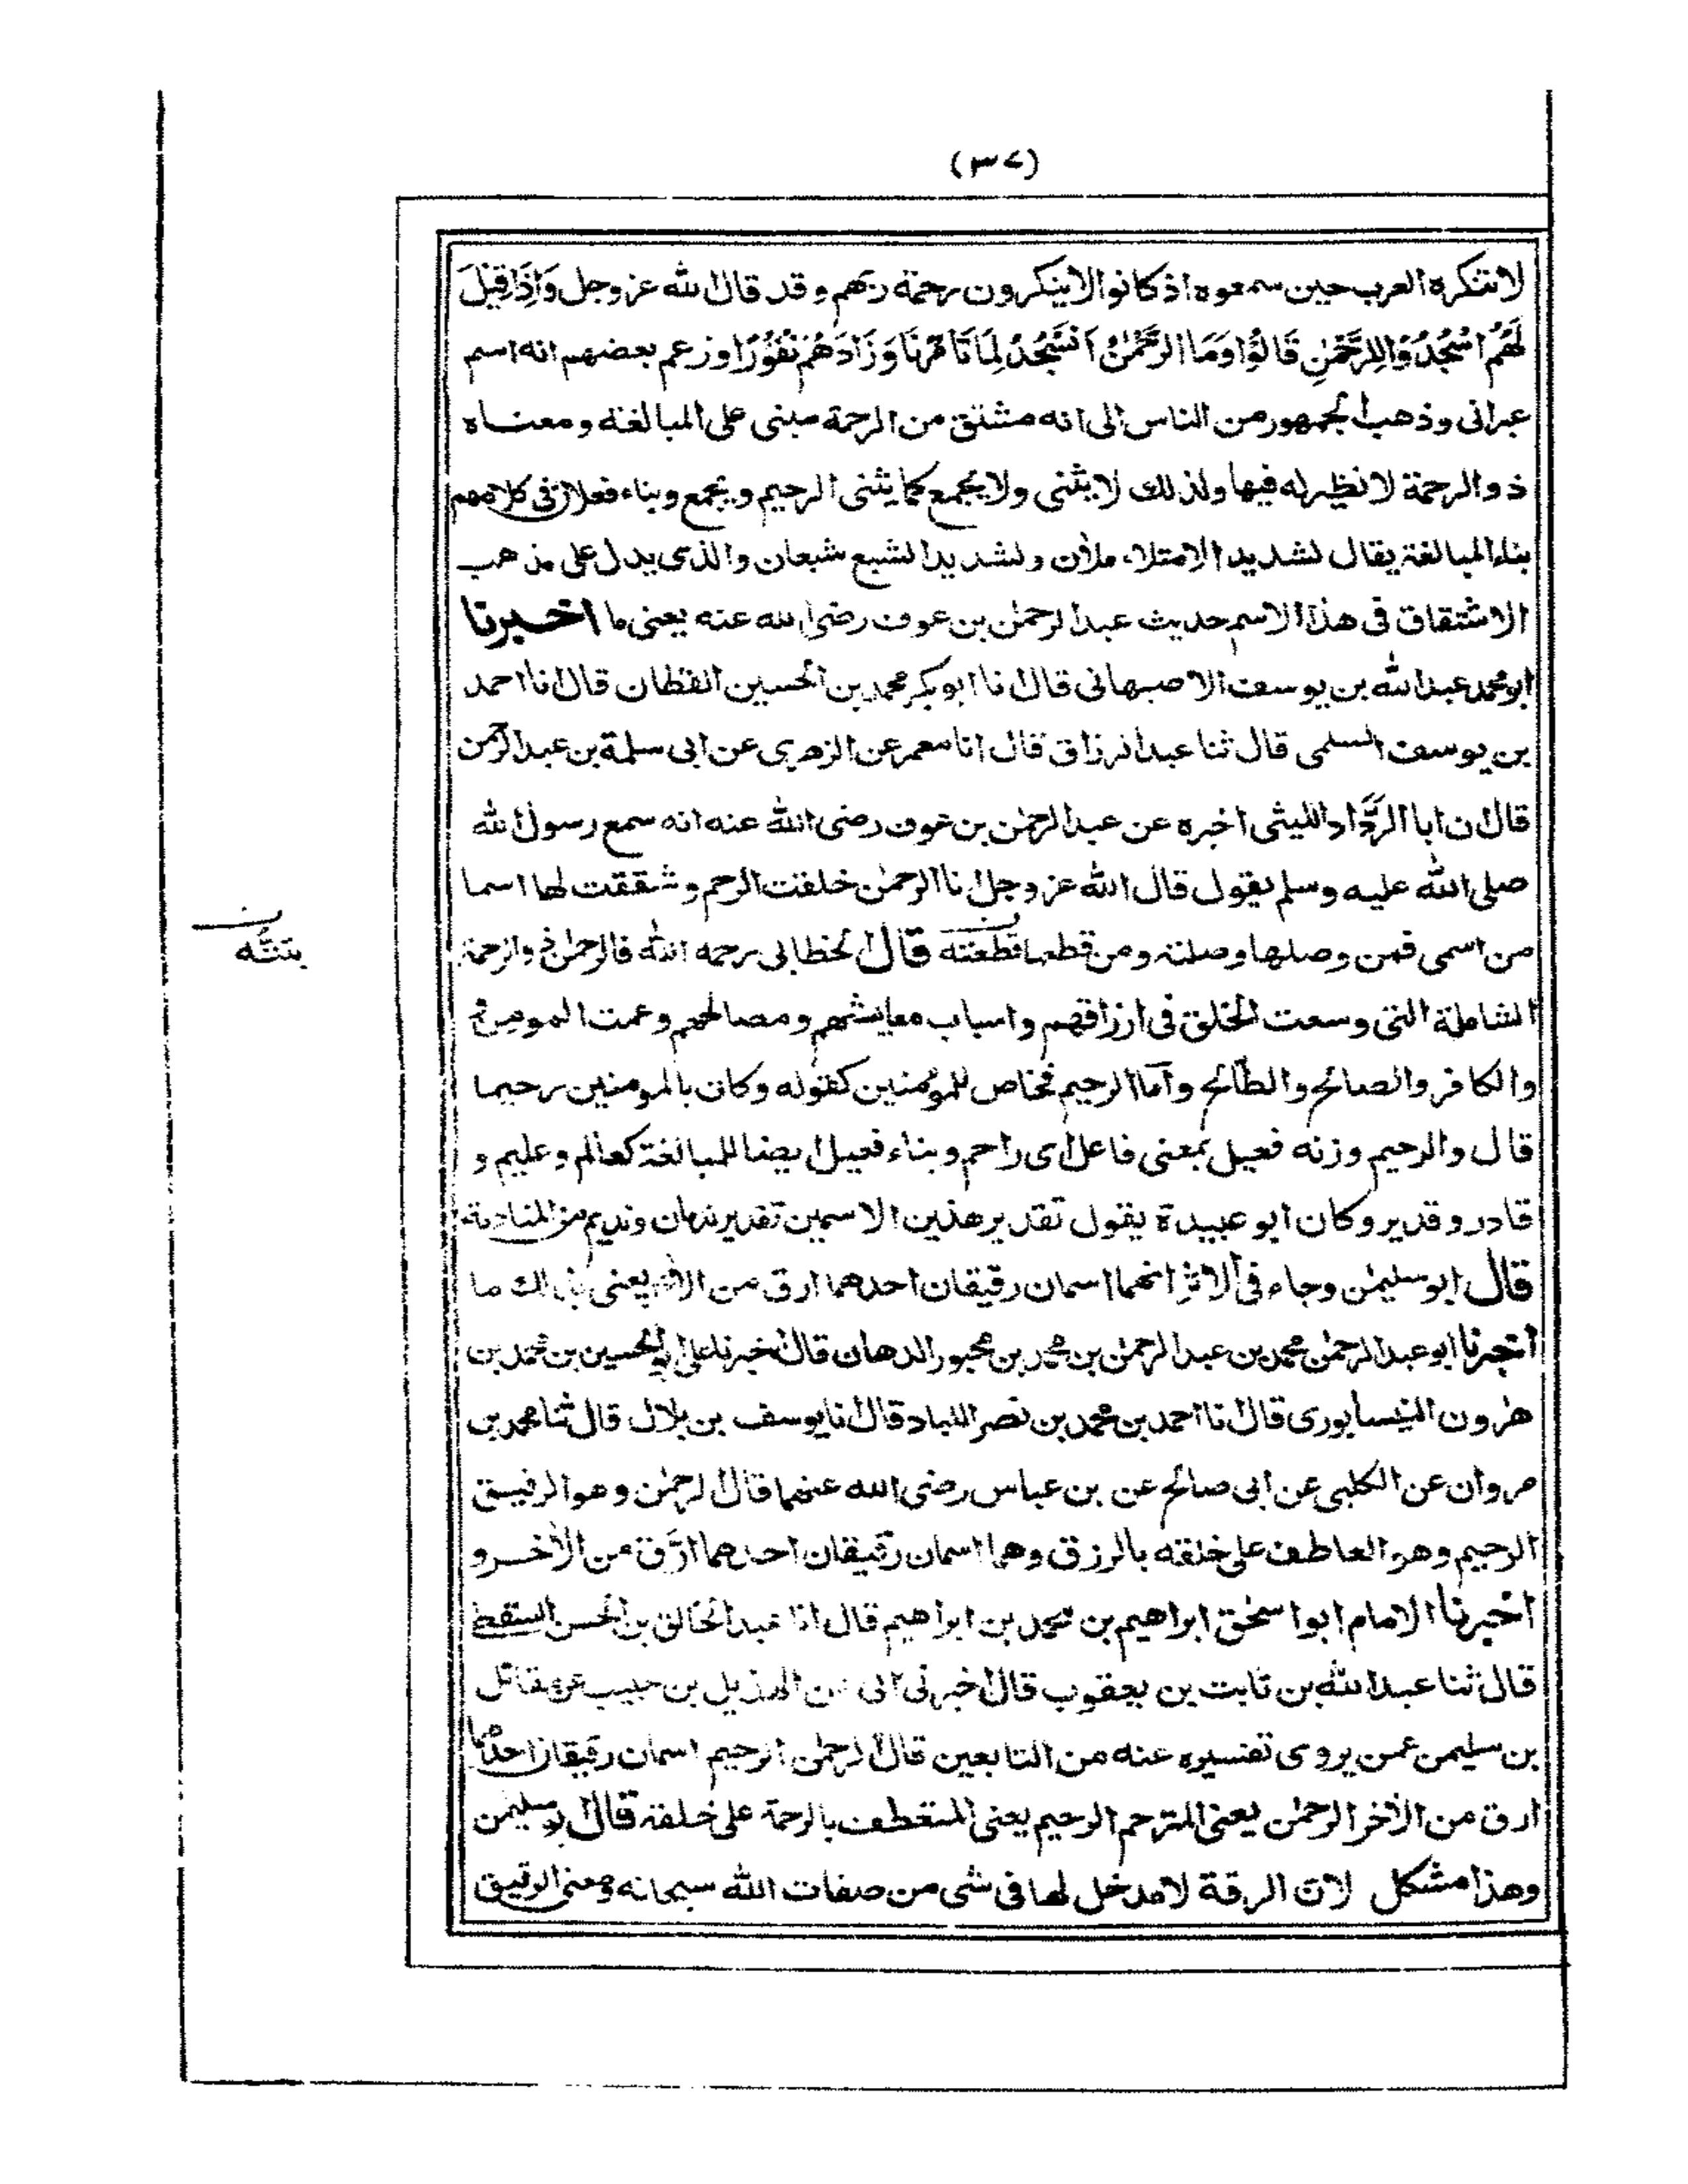 (٣٧)
لا تنكره العرب حين سمعوه اذ كانوا لا ينكرون رحمة ربهم وقد قال الله عز وجل وَاِذَا قِيْلَ
لَهُمُ اسْجُدُوْا لِلرَّحْمٰنِ قَالُوْا وَمَا الرَّحْمٰنُ اَنَسْجُدُ لِمَا تَاْمُرُنَا وَزَادَهُمْ نُفُوْرًا وزعم بعضهم انه اسم
عبرانى وذهب الجمهور من الناس الى انه مشتق من الرحمة مبنى على المبالغة ومعناه
ذو الرحمة لا نظير له فيها ولذلك لا يثنى ولا يجمع كما يثنى الرحيم ويجمع وبناء فعلان فى كلامهم
بناء المبالغة يقال لشديد الامتلاء ملأن ولشديد الشبع شبعان والذى يدل على مذهب
الاشتقاق فى هذا الاسم حديث عبد الرحمٰن بن عوف رضى الله عنه يعنى ما اخبرنا
ابو محمد عبد الله بن يوسف الاصبهانى قال نا ابو بكر محمد بن الحسين القطان قال نا احمد
بن يوسف السلمى قال ثنا عبد الرزاق قال انا معمر عن الزهرى عن ابى سلمة بن عبد الرحمن
قال ان ابا الرَّدَّاد الليثى اخبره عن عبد الرحمٰن بن عوف رضى الله عنه انه سمع رسول الله
صلى الله عليه وسلم يقول قال الله عز وجل انا الرحمٰن خلقت الرحم وشققت لها اسما
من اسمى فمن وصلها وصلته ومن قطعها قطعته قال الخطابى رحمه الله فالرحمٰن ذو الرحمة
ن
بتتُّه
الشاملة التى وسعت الخلق فى ارزاقهم واسباب معايشهم ومصالحهم وعمت المومن
والكافر والصالح والطالح وأما الرحيم فخاص للمؤمنين كقوله وكان بالمومنين رحيما
قال والرحيم وزنه فعيل بمعنى فاعل اى راحم وبناء فعيل ايضا للمبالغة كعالم وعليم و
قادر وقدير وكان ابو عبيدة يقول تقدير هذين الاسمين تقدير ندمان ونديم من المنادمة
قال ابو سليمٰن وجاء فى الاثر انهما اسمان رقيقان احدهما ارق من الأخر يعنى بذلك ما
اخبرنا ابو عبد الرحمٰن محمد بن عبد الرحمٰن بن محمد بن محبور الدهان قال اخبرنا ابو الحسين بن محمد بن
هٰرون النيسابورى قال نا احمد بن محمد بن نصر اللباد قال نا يوسف بن بلال قال ثنا محمد بن
مروان عن الكلبى عن ابى صالح عن بن عباس رضى الله عنهما قال الرحمٰن وهو الرقيق
الرحيم وهو العاطف على خلقه بالرزق وهما اسمان رقيقان احدهما ارق من الأخر و
اخبرنا الامام ابو اسحٰق ابراهيم بن محمد بن ابراهيم قال انا عبد الخالق بن الحسن السقطى
قال ثنا عبد الله بن ثابت بن يعقوب قال اخبرنى ابى عن الهذيل بن حبيب عن مقاتل
بن سليمن عمن يروى تفسيره عنه من التابعين قال الرحمٰن الرحيم اسمان رقيقان احدهما
ارق من الأخر الرحمٰن يعنى المترحم الرحيم يعنى المتعطف بالرحمة على خلقه قال ابو سليمٰن
وهذا مشكل لان الرقة لا مدخل لها فى شى من صفات الله سبحانه ومعنى الرقيق